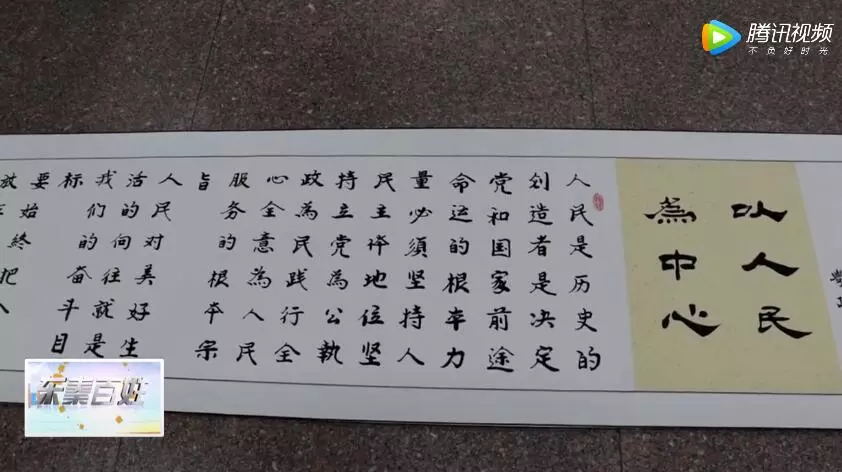 腾讯视频
不负好时光
以人民
為中心
人民是历史的
创造者是决定
党和国家前途
命运的根本力
量必須坚持人
民主体地位坚
持立党為公執
政為民践行全
心全意為人民
服务的根本宗
旨
人民对美好生
活的向往就是
我们的奋斗目
标
要始終把
放
东秦百姓